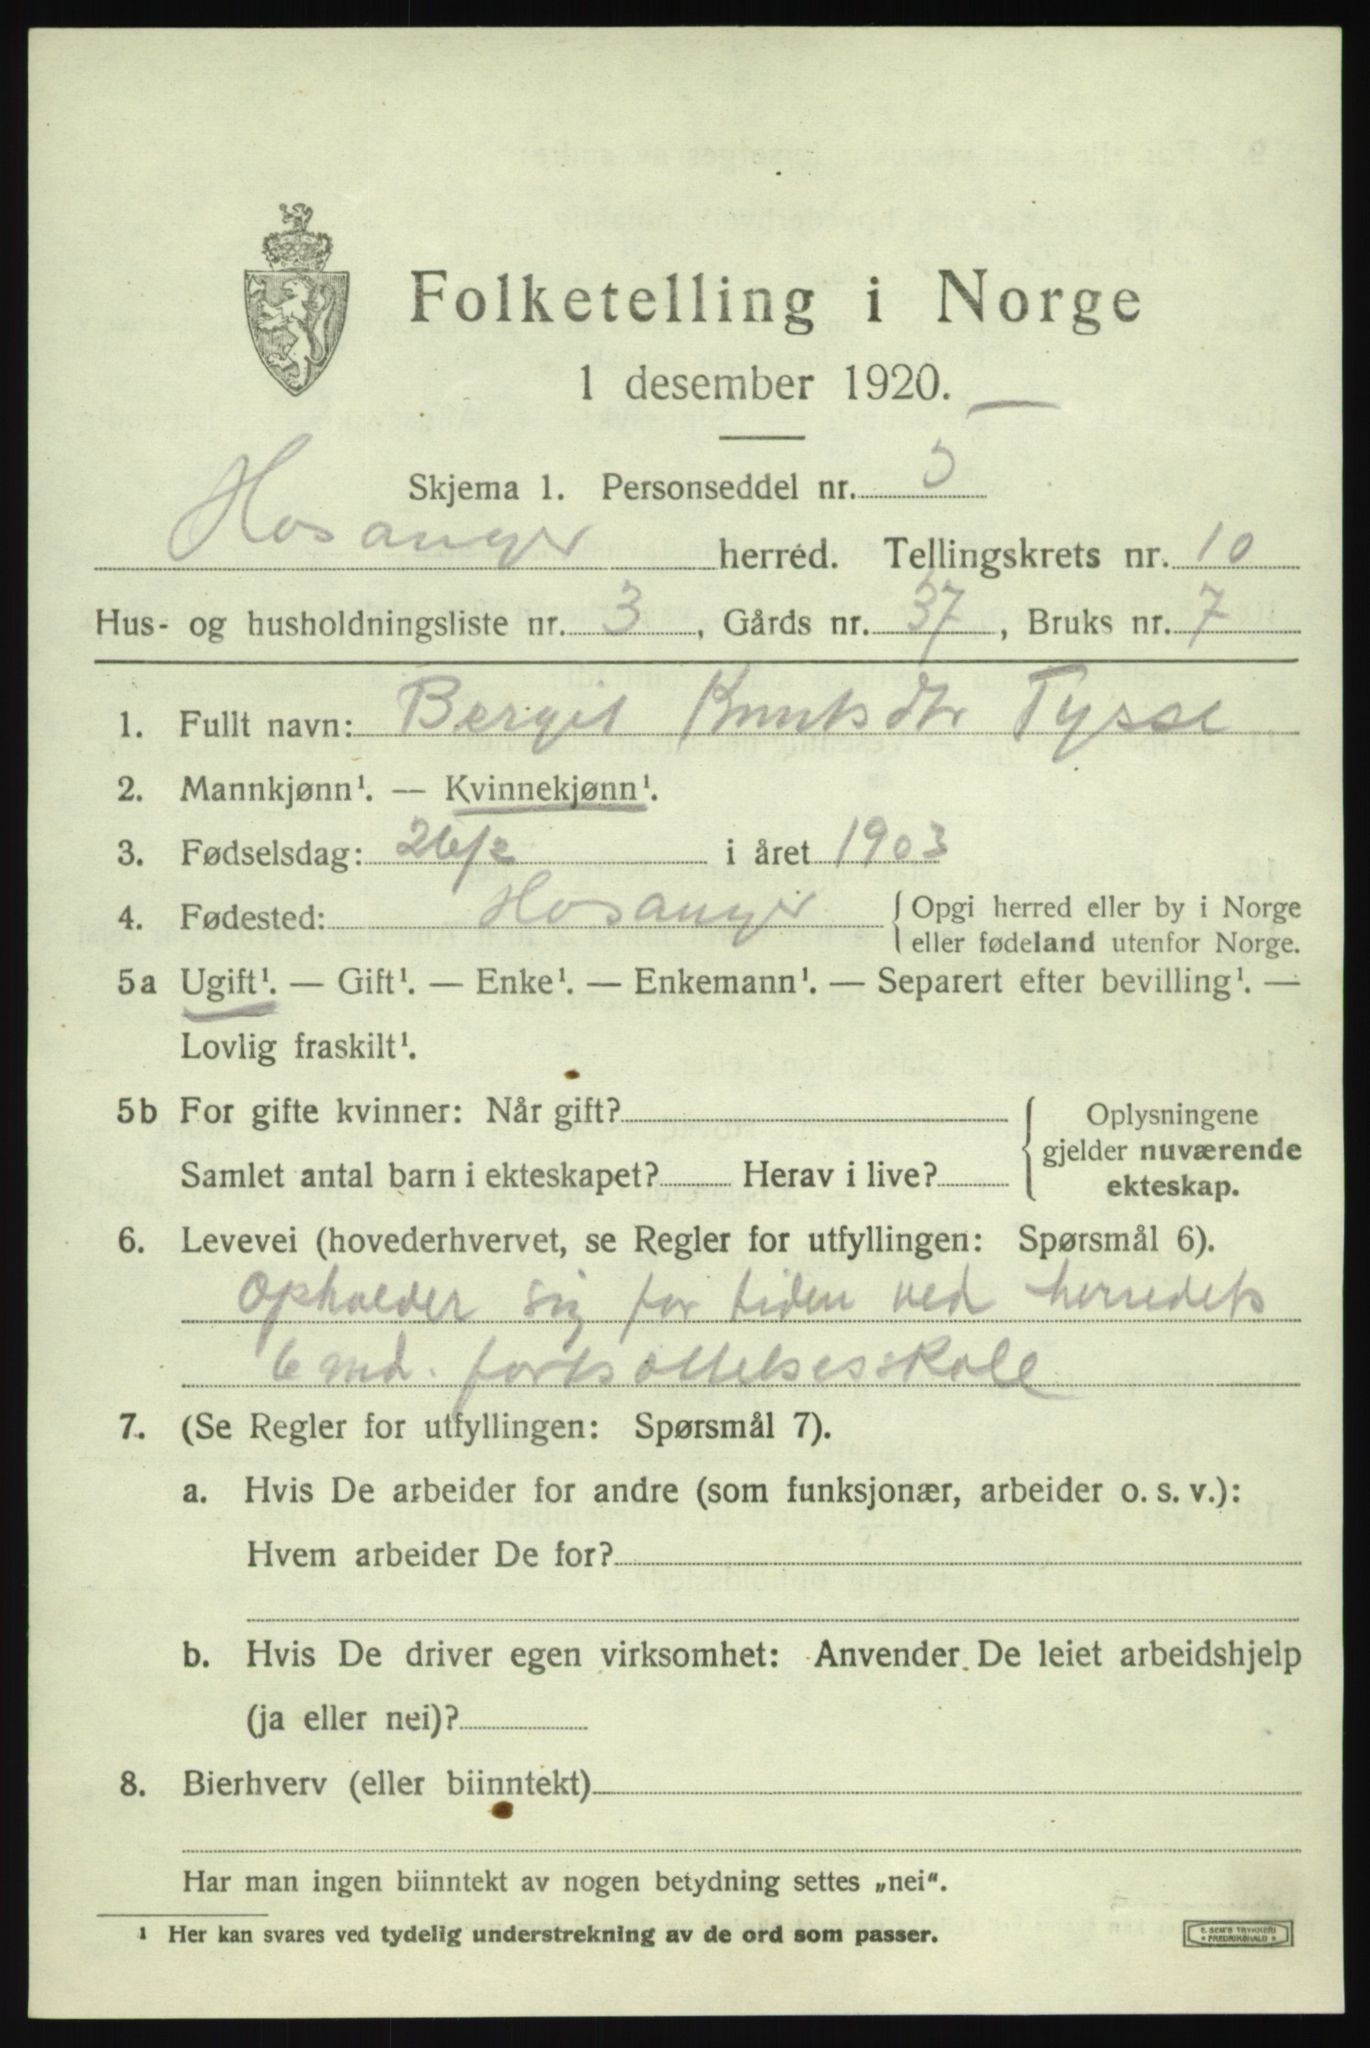 Folketelling i Norge
1 desember 1920.
Skjema 1. Personseddel nr. 5
Hosanger herred. Tellingskrets nr. 10
Hus- og husholdningsliste nr. 3, Gårds nr. 37, Bruks nr. 7
1. Fullt navn: Berget Knutsdtr Tysse
2. Mannkjønn¹. — Kvinnekjønn¹.
3. Fødselsdag: 26/2 i året 1903
4. Fødested: Hosanger { Opgi herred eller by i Norge
eller fødeland utenfor Norge.
5a Ugift¹. — Gift¹. — Enke¹. — Enkemann¹. — Separert efter bevilling¹. —
Lovlig fraskilt¹.
5b For gifte kvinner: Når gift? { Oplysningene
gjelder nuværende
Samlet antal barn i ekteskapet? Herav i live? ekteskap.
6. Levevei (hovederhvervet, se Regler for utfyllingen: Spørsmål 6).
Opholder sig for tiden ved herredets
6 md. fortsottelsesskole
7. (Se Regler for utfyllingen: Spørsmål 7).
a. Hvis De arbeider for andre (som funksjonær, arbeider o. s. v.):
Hvem arbeider De for?
b. Hvis De driver egen virksomhet: Anvender De leiet arbeidshjelp
(ja eller nei)?
8. Bierhverv (eller biinntekt)
Har man ingen biinntekt av nogen betydning settes „nei“.
¹ Her kan svares ved tydelig understrekning av de ord som passer.
E. SEM'S TRYKKERI
* FREDRIKSHALD *